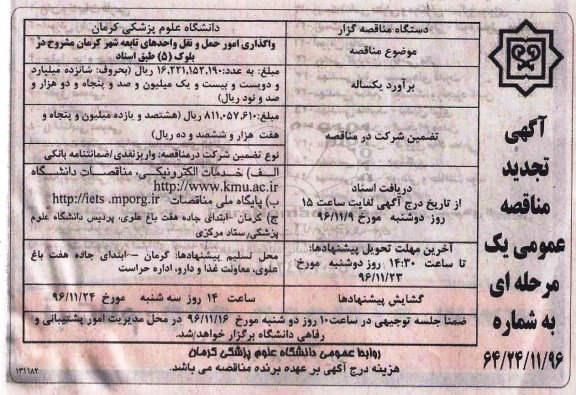 آگهی
تجدید
مناقصه
عمومی یک
مرحله ای
به شماره
۶۴/۲۴/۱۱/۹۶
دستگاه مناقصه گزار
دانشگاه علوم پزشکی کرمان
موضوع مناقصه
واگذاری امور حمل و نقل واحدهای تابعه شهر کرمان مشروح در
بلوک (۵) طبق اسناد
برآورد یکساله
مبلغ: به عدد:۱۶،۲۲۱،۱۵۲،۱۹۰ ریال (بحروف: شانزده میلیارد
و دویست و بیست و یک میلیون و صد و پنجاه و دو هزار و
صد و نود ریال)
تضمین شرکت در مناقصه
مبلغ: ۸۱۱،۰۵۷،۶۱۰ ریال (هشتصد و یازده میلیون و پنجاه و
هفت هزار و ششصد و ده ریال)
نوع تضمین شرکت درمناقصه: واریزنقدی/ضمانتنامه بانکی
دریافت اسناد
از تاریخ درج آگهی لغایت ساعت ۱۵
روز دوشنبه مورخ ۹۶/۱۱/۹
الف) خدمات الکترونیکی، مناقصات دانشگاه
http://www.kmu.ac.ir
ب) پایگاه ملی مناقصات http://iets .mporg.ir
ج) کرمان -ابتدای جاده هفت باغ علوی، پردیس دانشگاه علوم
پزشکی،ستاد مرکزی
آخرین مهلت تحویل پیشنهادها:
تا ساعت ۱۴:۳۰ روز دوشنبه مورخ
۹۶/۱۱/۲۳
محل تسلیم پیشنهادها: کرمان –ابتدای جاده هفت باغ
علوی، معاونت غذا و دارو، اداره حراست
گشایش پیشنهادها
ساعت ۱۴ روز سه شنبه مورخ ۹۶/۱۱/۲۴
ضمنا جلسه توجیهی در ساعت۱۰ روز دو شنبه مورخ ۹۶/۱۱/۱۶ در محل مدیریت امور پشتیبانی و
رفاهی دانشگاه برگزار خواهدشد.
روابط عمومی دانشگاه علوم پزشکی کرمان
هزینه درج آگهی بر عهده برنده مناقصه می باشد.
۱۳۱۱۸۲